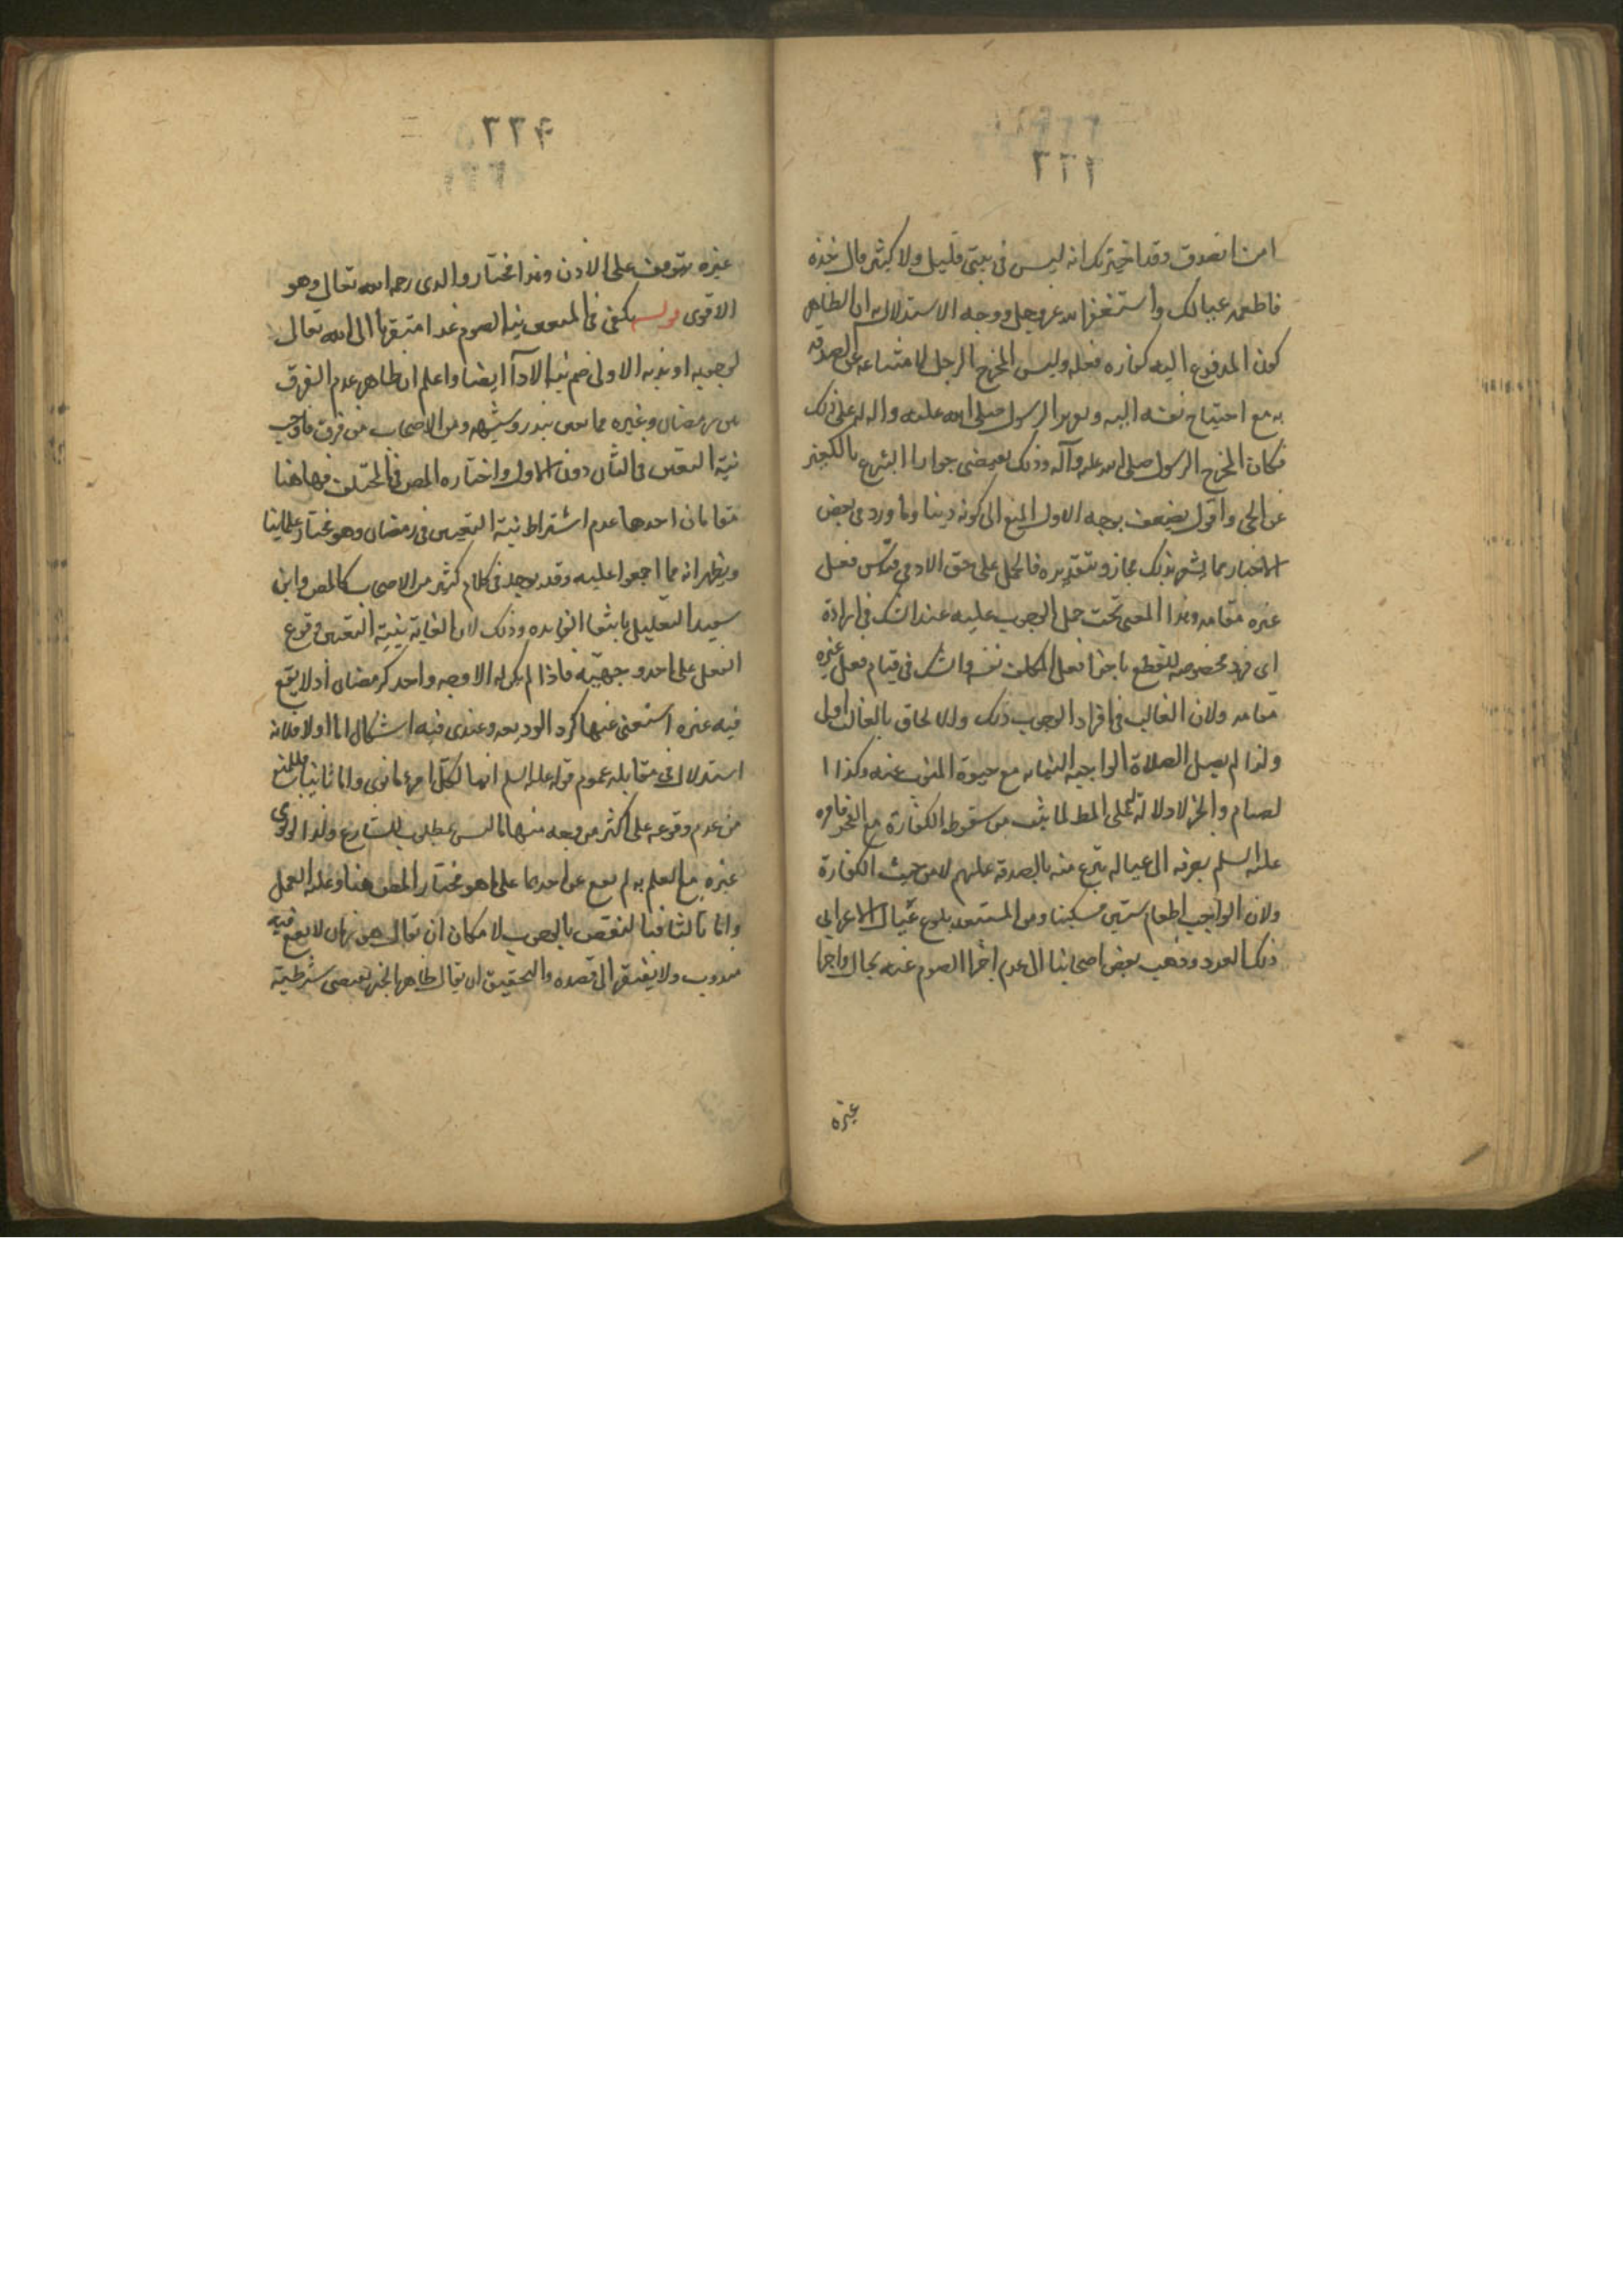 ٢٢٢
امن اتصدق وقد اخبرتك انه ليس في بيتي قليل ولا كثير قال خذه
فاطعمه عيالك واستغفر الله عز وجل ووجه الاستدلال به ان الظاهر
كون المدفوع اليه كفاره فعله وليس المخرج الرجل لامتناعه عن الصدقة
به مع احتياج نفسه اليه و الرسول صلى الله عليه واله له على ذلك
فكان المخرج الرسول صلى الله عليه وآله وذلك يقتضي جواز التبرع بالتكفير
عن الحي واقول يضعف بوجه الاول المنع الى كونه دينا وما ورد في بعض
الاخبار مما يشعر بذلك مجاز وبتقديره فالحمل على حق الادمي قياس فعل
غيره مقامه وهذا المعنى تحت حمل الوجوب عليه عند الشك في ارادة
اى فرد مخصوصه للقطع باجزا فعل المكلف نفسه والشك في قيام فعل غيره
مقامه ولان الغالب في افراد الوجوب ذلك والالحاق بالغالب اولى
ولذا لم يصل الصلاة الواجبة النيابه مع حيوة المنوب عنه وكذا ا
لصيام والخبر لا دلالة له على المط لما ثبت من سقوط الكفارة مع العجز فامره
عليه السلم بصرفه الى عياله تبرع منه بالصدقة عليهم لا من حيث الكفارة
ولان الواجب اطعام ستين مسكينا ومن المستبعد بلوغ عيال الاعرابي
ذلك العدد وذهب بعض اصحابنا الى عدم اجزا الصوم عنه بحال واجزا
غيره
٢٢٣
غيره يتوقف على الاذن وهذا مختار والدى رحمه الله تعالى وهو
الاقوى قوله يكفى فى المتعين نية الصوم غدا متقربا الى الله تعالى
لوجوبه او ندبه الاولى ضم نية الادآ ايضا واعلم ان ظاهره عدم الفرق
بين رمضان وغيره مما تعين بنذر وشبهه ومن الاصحاب من فرق فاوجب
نية التعيين فى الثانى دون الاول واختاره المص فى المختلف فهاهنا
مقامان احدها عدم اشتراط نية التعيين فى رمضان وهو مختار علماينا
ويظهر انه مما اجمعوا عليه وقد يوجد فى كلام كثير من الاصحاب كالمص وابن
سعيد التعليل بانتفا الفايده وذلك لان الغاية بنية التعيين وقوع
الفعل على احد وجهيه فاذا لم يكن له الا وجه واحد كرمضان اذ لا يقع
فيه غيره استغنى عنها كرد الوديعه وعندى فيه اشكال اما اولا فلانه
استدلال فى مقابله عموم قوله عليه السلم انما لكل امرء ما نوى واما ثانيا فللمنع
من عدم وقوعه على اكثر من وجه منها ما ليس بمطلوب للشارع ولذا لو نوى
غيره مع العلم به لم يقع عن احدهما على ما هو مختار المص هنا وعليه العمل
واما ثالثا فبالنقص بالوجوب لامكان ان يقال هو زمان لا يقع فيه
مندوب ولا يفتقر الى قصده والتحقيق ان يقال ظاهر الخبر يقتضى شرطية